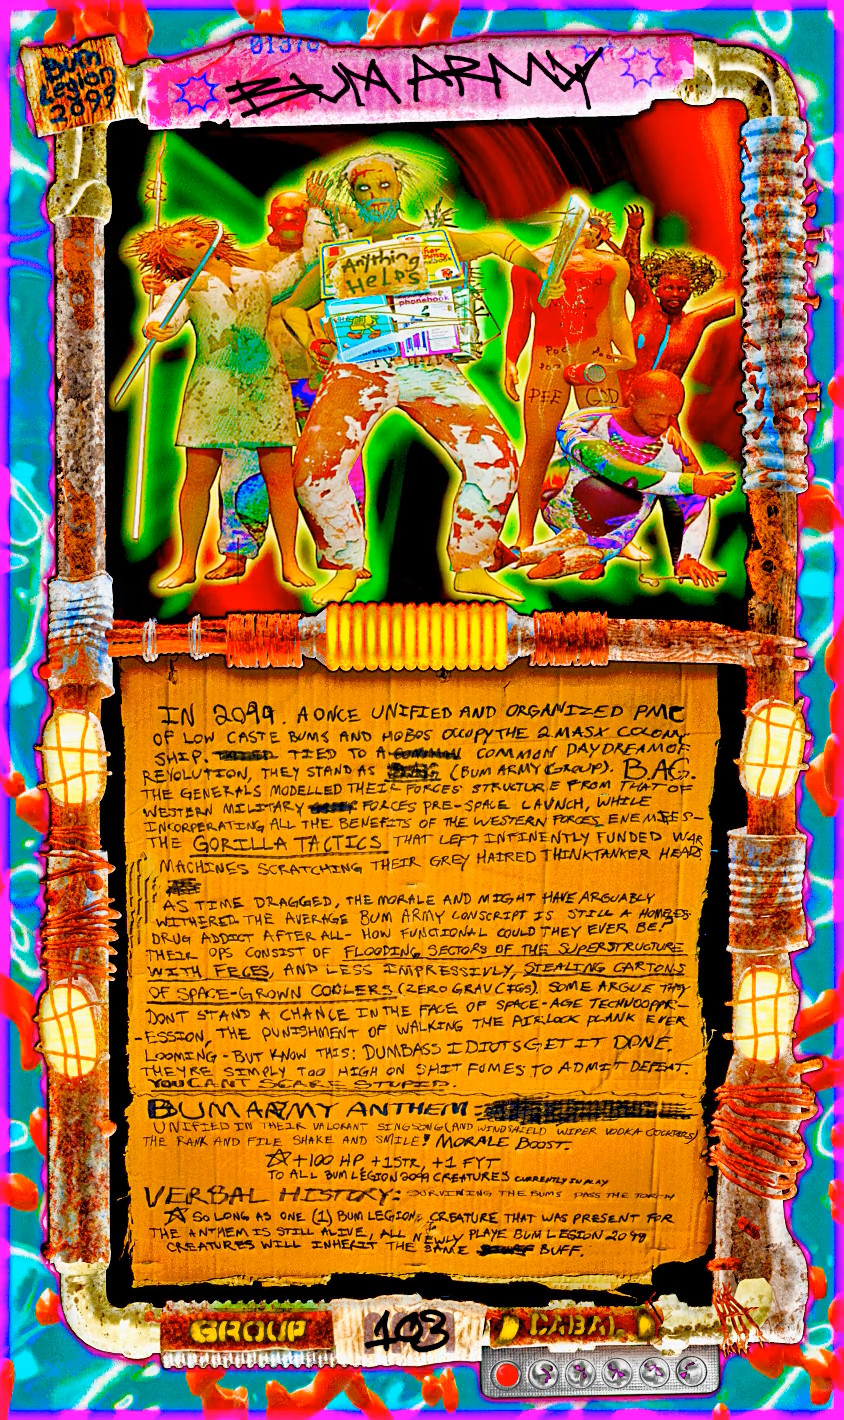 01376
Bum
Legion
2099
BUM ARMY
Anything
HELPS
phonebook
PEE GOD
IN 2099. A ONCE UNIFIED AND ORGANIZED PMC
OF LOW CASTE BUMS AND HOBOS OCCUPY THE 2MASX COLONY
SHIP. TIED TO A COMMON DAYDREAM OF
REVOLUTION, THEY STAND AS (BUM ARMY GROUP). B.A.G.
THE GENERALS MODELLED THEIR FORCES STRUCTURE FROM THAT OF
WESTERN MILITARY FORCES PRE-SPACE LAUNCH, WHILE
INKORPERATING ALL THE BENEFITS OF THE WESTERN FORCES ENEMIES-
THE GORILLA TACTICS THAT LEFT INFINENTLY FUNDED WAR
MACHINES SCRATCHING THEIR GREY HAIRED THINKTANKER HEADS
AS TIME DRAGGED, THE MORALE AND MIGHT HAVE ARGUABLY
WITHERED. THE AVERAGE BUM ARMY CONSCRIPT IS STILL A HOMELESS
DRUG ADDICT AFTER ALL- HOW FUNCTIONAL COULD THEY EVER BE?
THEIR OPS CONSIST OF FLOODING SECTORS OF THE SUPERSTRUCTURE
WITH FECES, AND LESS IMPRESSIVLY, STEALING CARTONS
OF SPACE-GROWN COOLERS (ZERO GRAV CIGS). SOME ARGUE THEY
DONT STAND A CHANCE IN THE FACE OF SPACE-AGE TECHNOOPPR-
-ESSION, THE PUNISHMENT OF WALKING THE AIRLOCK PLANK EVER
LOOMING- BUT KNOW THIS: DUMBASS IDIOTS GET IT DONE.
THEY'RE SIMPLY TOO HIGH ON SHIT FUMES TO ADMIT DEFEAT.
YOU CANT SCARE STUPID.
BUM ARMY ANTHEM:
UNIFIED IN THEIR VALORANT SINGSONG (AND WINDSHIELD WIPER VODKA COCKTAILS)
THE RANK AND FILE SHAKE AND SMILE! MORALE BOOST.
+100 HP +1STR, +1 FYT
TO ALL BUM LEGION 2099 CREATURES CURRENTLY IN PLAY
VERBAL HISTORY: SURVIVING THE BUMS PASS THE TORCH
SO LONG AS ONE (1) BUM LEGION CREATURE THAT WAS PRESENT FOR
THE ANTHEM IS STILL ALIVE, ALL NEWLY PLAYE BUM LEGION 2099
CREATURES WILL INHERIT THE SAME BUFF.
GROUP 103 CABAL